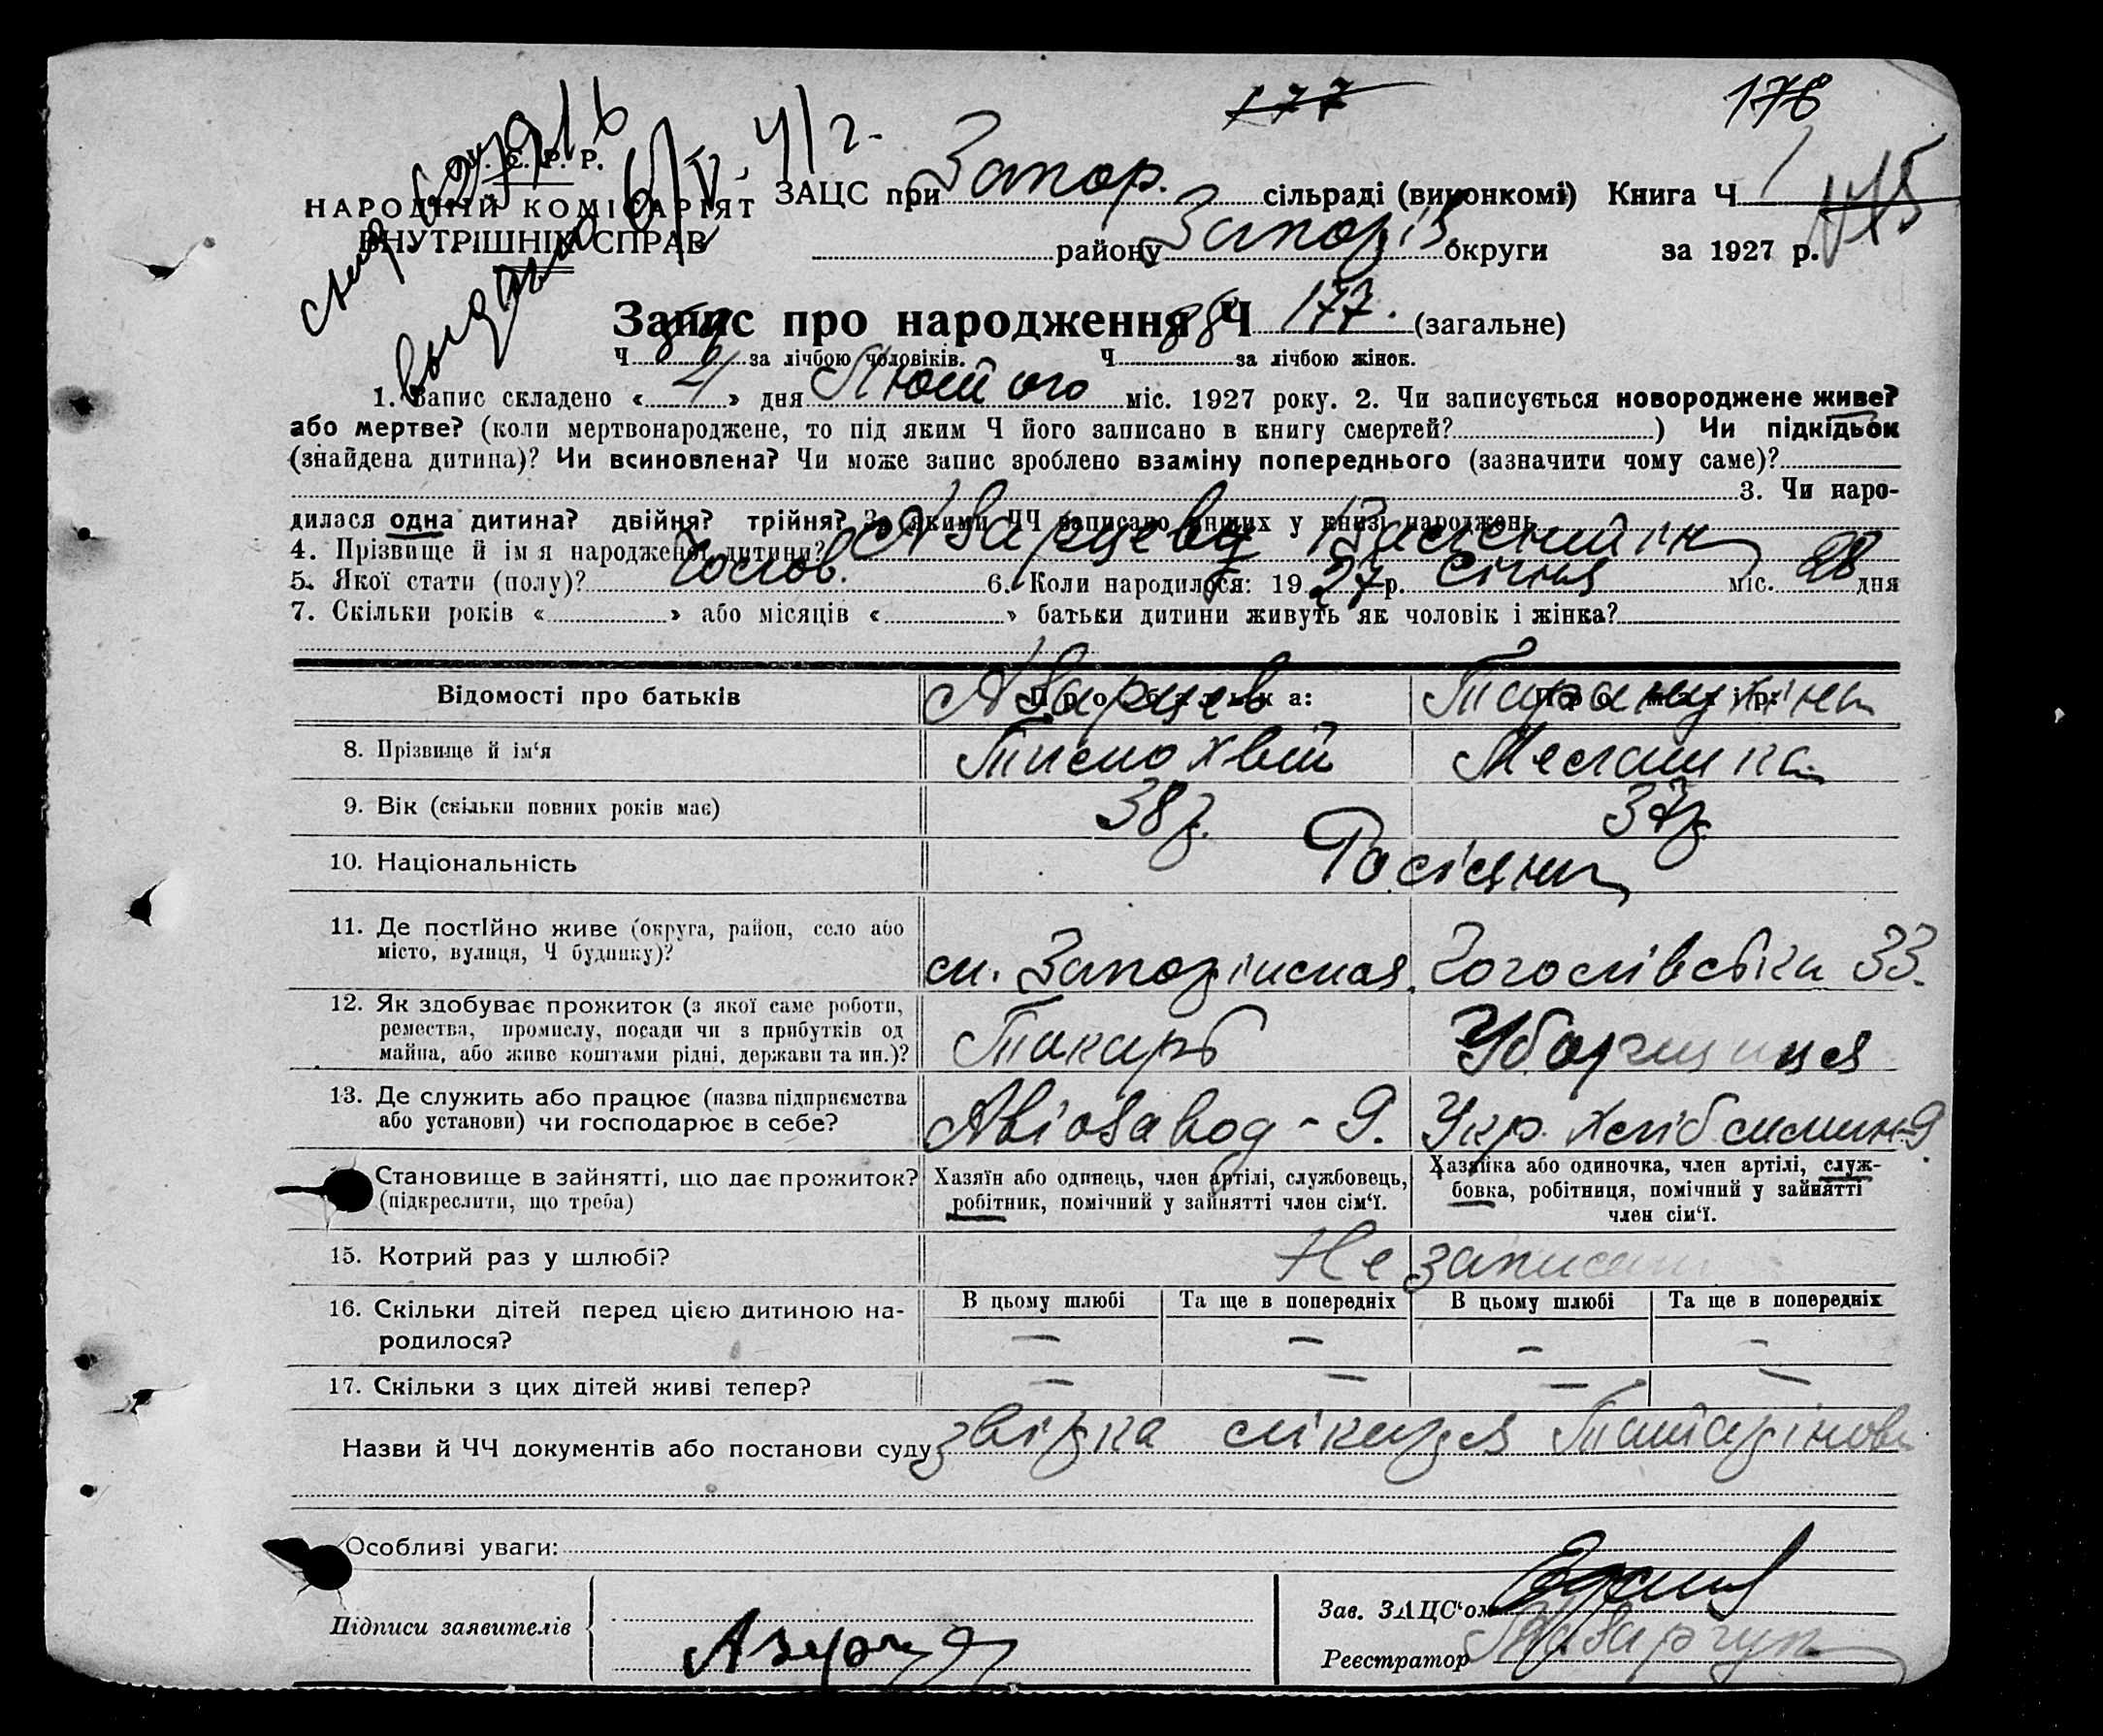 177 178
У. С. Р. Р.
НАРОДНІЙ КОМІСАРІЯТ
ВНУТРІШНІХ СПРАВ
ЗАЦС при Запор. сільраді (виконкомі) Книга Ч 1
району Запоріз округи за 1927 р.
Запис про народження Ч 177. (загальне)
Ч за лічбою чоловіків. Ч за лічбою жінок.
1. Запис складено « 4 » дня Лютого міс. 1927 року. 2. Чи записується новороджене живе?
або мертве? (коли мертвонароджене, то під яким Ч його записано в книгу смертей? ) Чи підкідьок
(знайдена дитина)? Чи всиновлена? Чи може запис зроблено взаміну попереднього (зазначити чому саме)?
3. Чи наро-
дилася одна дитина? двійня? трійня? За якими ЧЧ записано інших у книзі народжень
4. Прізвище й ім'я народженої дитини?
5. Якої стати (полу)? Чолов. 6. Коли народилося: 1927 р. Січня міс. 28 дня
7. Скільки років « » або місяців « » батьки дитини живуть як чоловік і жінка?
Відомості про батьків Про батька: Про матір:
8. Прізвище й ім'я Тимохвій Меланика
9. Вік (скільки повних років має) 38 р. 37 р.
10. Національність Росіяни
11. Де постійно живе (округа, район, село або
місто, вулиця, Ч будинку)? Гоголівська 33.
12. Як здобуває прожиток (з якої саме роботи,
ремества, промислу, посади чи з прибутків од
майна, або живе коштами рідні, держави та ин.)? Токарь Уборщиця
13. Де служить або працює (назва підприємства
або установи) чи господарює в себе? Авіозавод - 9.
Становище в зайнятті, що дає прожиток?
(підкреслити, що треба)
Хазяїн або одинець, член артілі, службовець,
робітник, помічний у зайнятті член сім'ї.
Хазяйка або одиночка, член артілі, служ-
бовка, робітниця, помічний у зайнятті
член сім'ї.
15. Котрий раз у шлюбі? Не записані
16. Скільки дітей перед цією дитиною на-
родилося?
В цьому шлюбі Та ще в попередніх В цьому шлюбі Та ще в попередніх
— — — —
17. Скільки з цих дітей живі тепер? — — — —
Назви й ЧЧ документів або постанови суду звідка лікаря
Особливі уваги:
Підписи заявителів
Зав. ЗАЦС'ом
Реєстратор